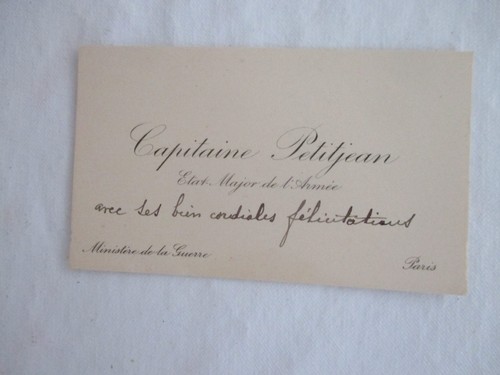 Capitaine Petitjean
Etat-Major de l'Armée
avec ses bien cordiales félicitations
Ministère de la Guerre
Paris